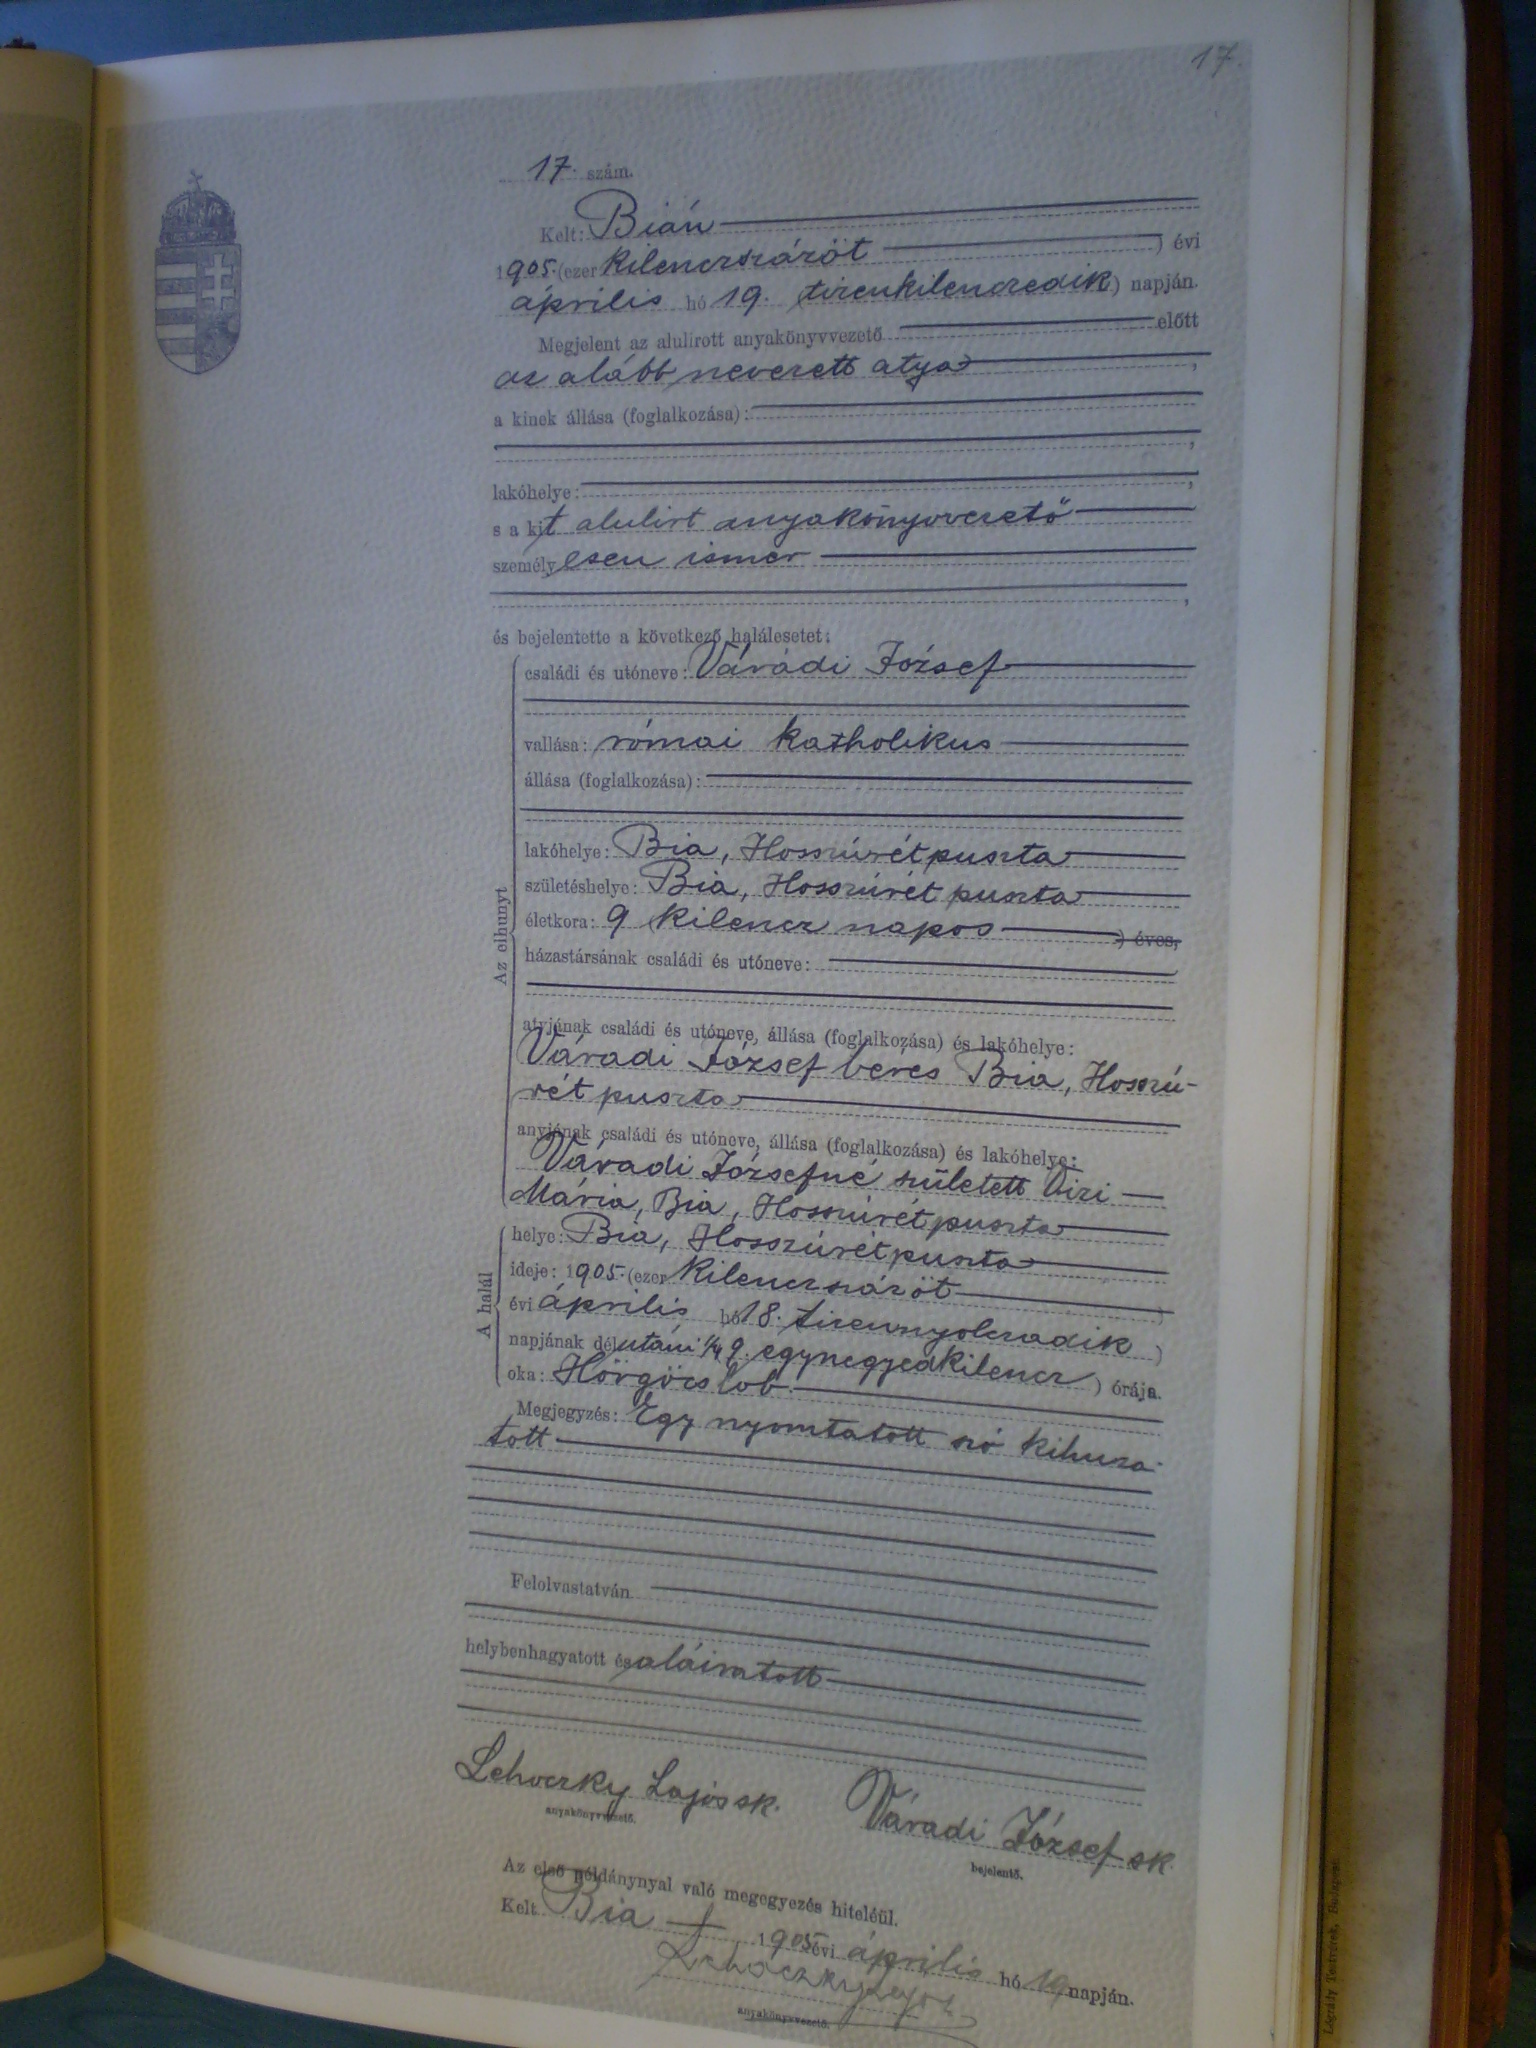 17.
17. szám.
Kelt: Bián
1905. (ezer kilenczszázöt ) évi
április hó 19. tizenkilenczedik ) napján.
Megjelent az alulírott anyakönyvvezető előtt
az alább nevezett atya ,
a kinek állása (foglalkozása):
,
lakóhelye: ,
s a kit alulirt anyakönyvvezető
személyesen ismer
,
és bejelentette a következő halálesetet:
Az elhunyt
családi és utóneve: Váradi József
vallása: római katholikus
állása (foglalkozása):
lakóhelye: Bia, Hosszúrétpuszta
születéshelye: Bia, Hosszúrét puszta
életkora: 9 kilencz napos ) éves,
házastársának családi és utóneve:
atyjának családi és utóneve, állása (foglalkozása) és lakóhelye:
Váradi József béres Bia, Hosszú-
rét puszta
anyjának családi és utóneve, állása (foglalkozása) és lakóhelye:
Váradi Józsefné született Vizi
Mária, Bia, Hosszúrétpuszta
A halál
helye: Bia, Hosszúrétpuszta
ideje: 1905. (ezer kilenczszázöt )
évi április hó 18. tizennyolczadik )
napjának délutáni 1/4 9. egynegyedkilencz ) órája.
oka: Hörgöcslob.
Megjegyzés: Egy nyomtatott szó kihuza-
tott
Felolvastatván
helybenhagyatott és aláiratott
Lehoczky Lajos sk. Váradi József sk.
anyakönyvvezető. bejelentő.
Az első példánynyal való megegyezés hiteléül.
Kelt Bia 1905 évi április hó 19 napján.
Lehoczky Lajos
anyakönyvvezető.
Légrády Testvérek, Budapest